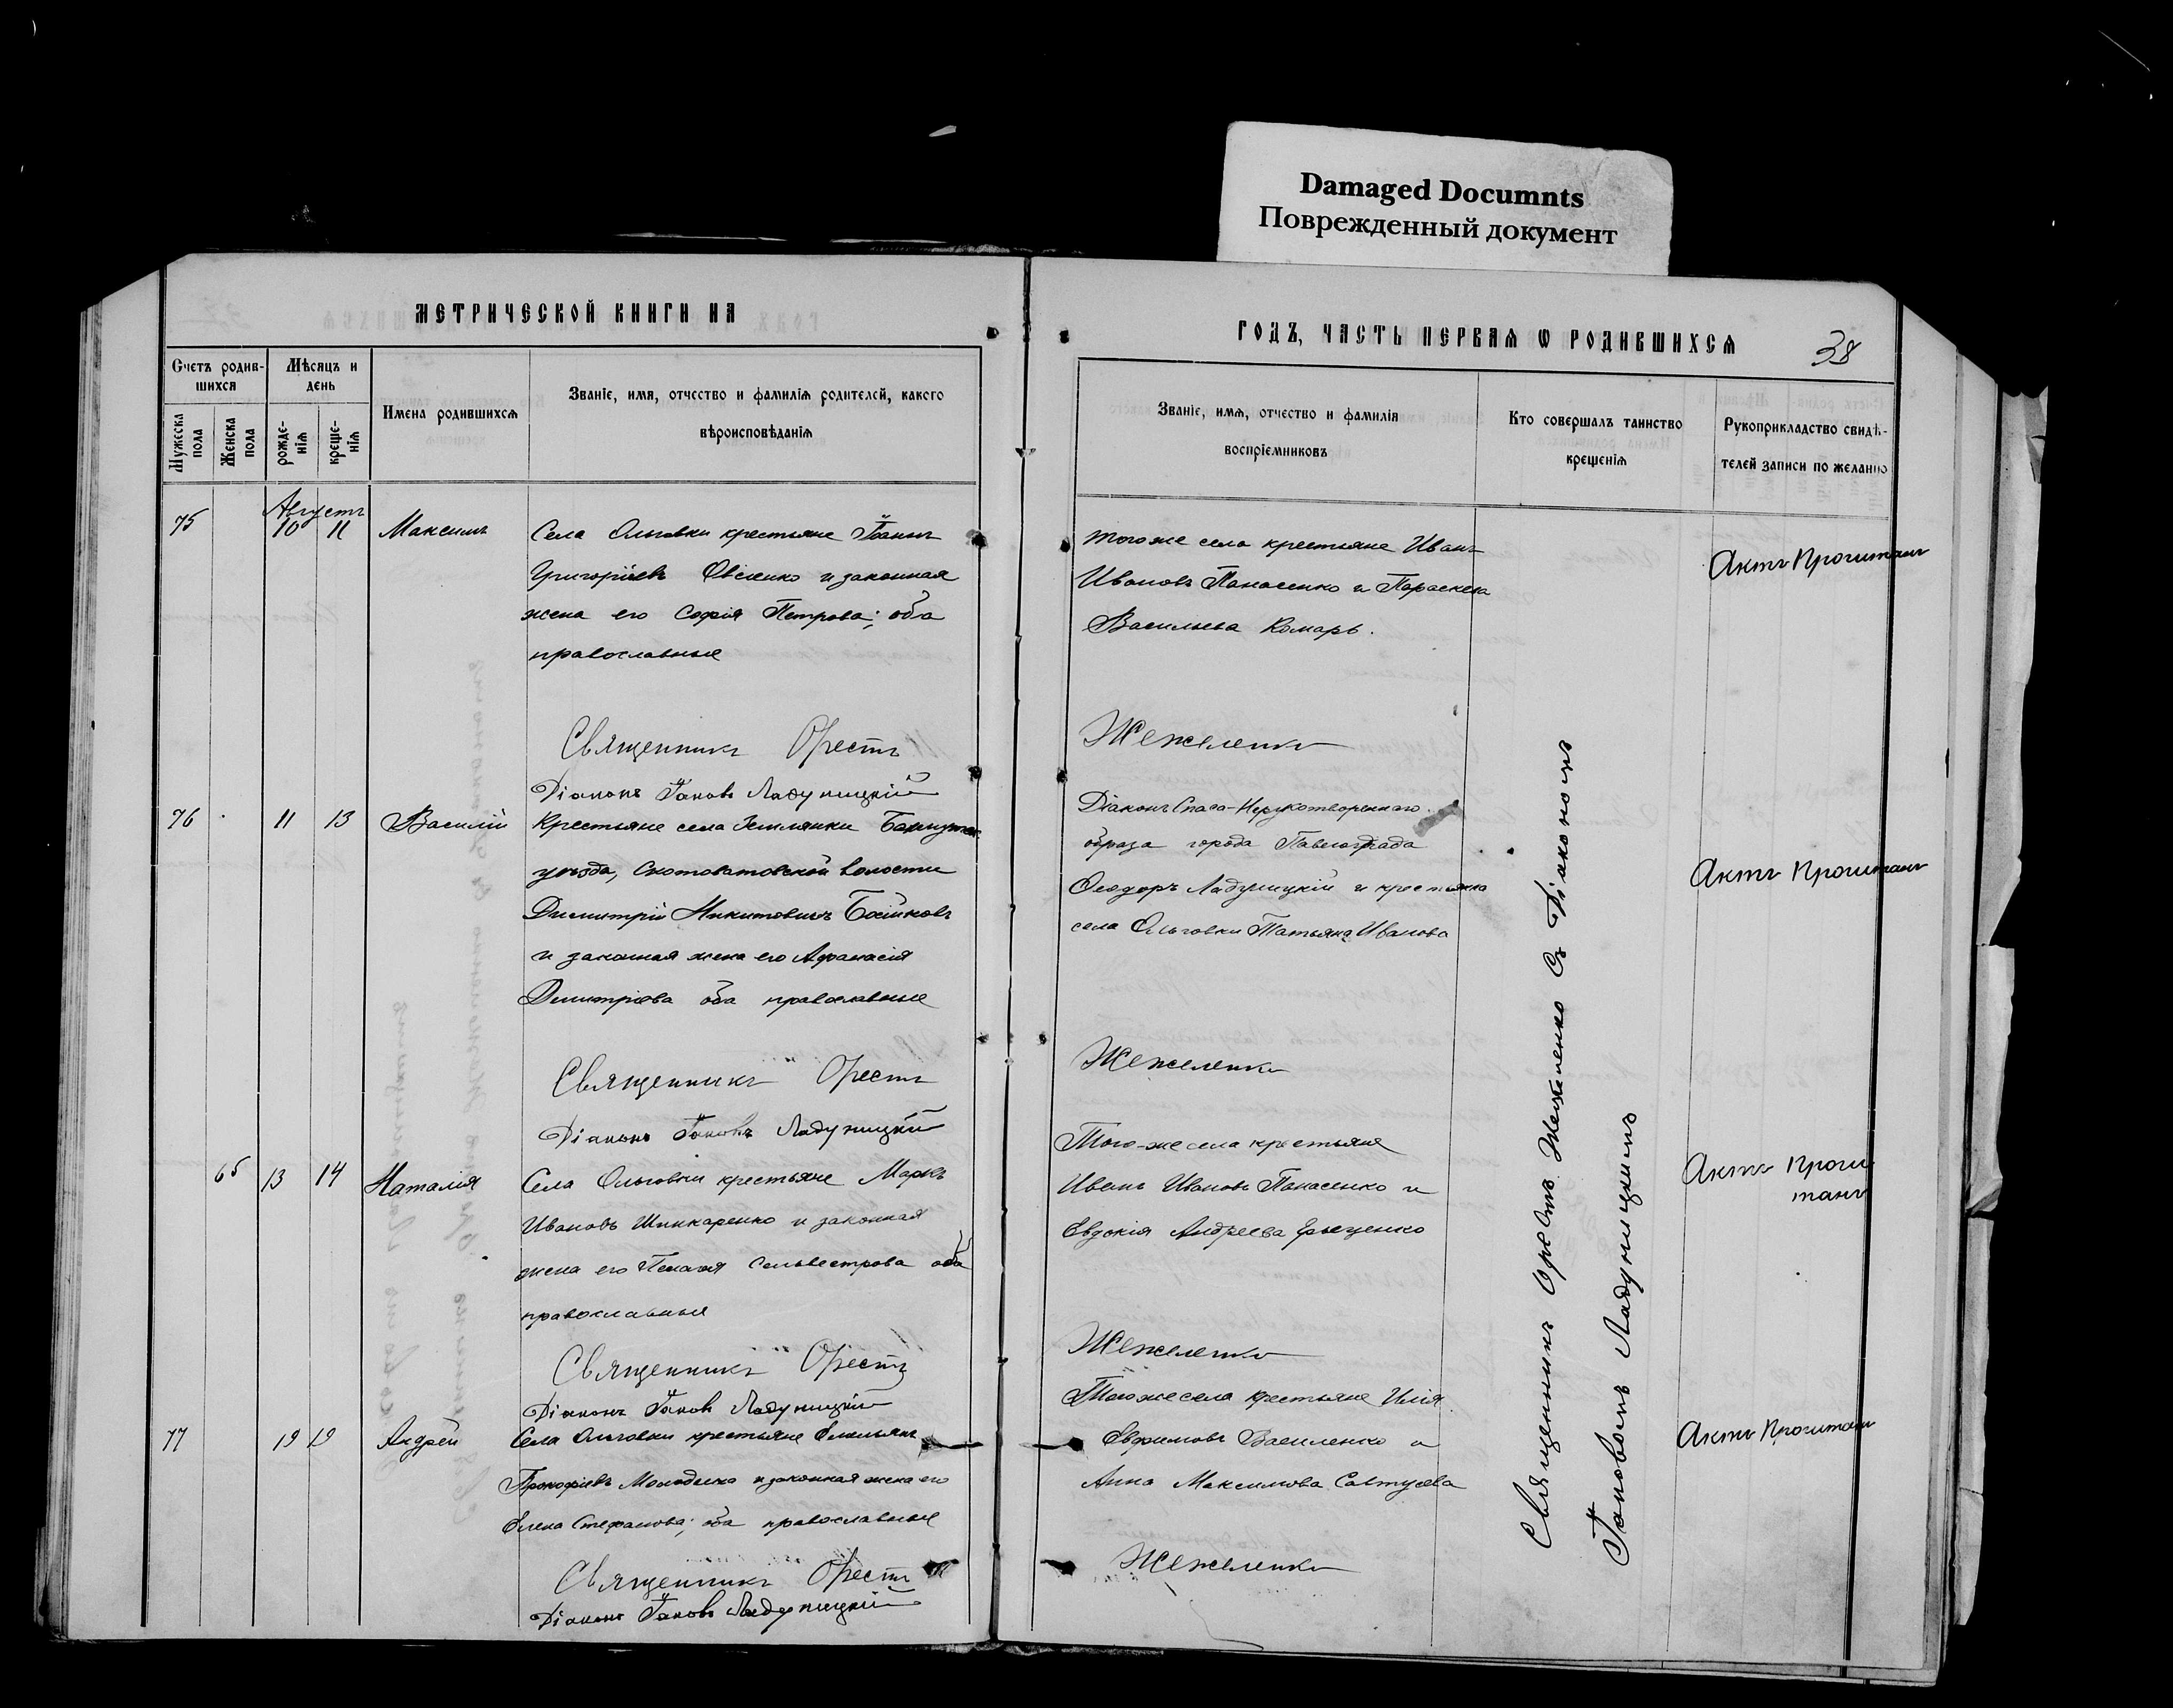 Damaged Documnts
Поврежденный документ
МЕТРИЧЕСКОЙ КНИГИ НА
ГОДЪ, ЧАСТЬ ПЕРВАЯ Ѡ РОДИВШИХСЯ
38
Счетъ родив-
шихся
Мѣсяцъ и
день
Имена родившихся
Званіе, имя, отчество и фамилія родителей, какого
вѣроисповѣданія
Мужеска
пола
Женска
пола
рожде-
нія
креще-
нія
Званіе, имя, отчество и фамилія
воспріемниковъ
Кто совершалъ таинство
крещенія
Рукоприкладство свидѣ-
телей записи по желанію
Августъ
75 10 11 Максимъ
Села Ольговки крестьяне Іоаннъ
Григоріевъ Овсіенко и законная
жена его Софія Петрова; оба
православные
тогоже села крестьяне Иванъ
Ивановъ Панасенко и Параскева
Васильева Комарь.
Актъ Прочитанъ
Священникъ Орестъ
Жежеленко
Діаконъ Іаковъ Ладухницкій
76 11 13 Василій
Крестьяне села Землянки
уѣзда, Скотоватовской волости
Димитрій Никитовичъ Бойковъ
и законная жена его Афанасія
Димитріева оба православные
Діаконъ Спаса-Нерукотвореннаго
образа города Павлограда
Ѳеодоръ и крестьянка
села Ольговки Татьяна Иванова
Актъ Прочитанъ
Священникъ Орестъ
Жежеленко
Діаконъ Іаковъ
65 13 14 Наталія
Села Ольговки крестьяне Маркъ
Ивановъ Шинкаренко и законная
жена его Пелагія Сельвестрова оба
православные
Того-же села крестьяне
Иванъ Ивановъ Панасенко и
Евдокія Андреева
Актъ Прочи
танъ
Священникъ Орестъ
Жежеленко
Діаконъ Іаковъ
77 19 19 Андрей
Села Ольговки крестьяне Емельянъ
Прокофіевъ и законная жена его
Елена Стефанова; оба православные
Тогоже села крестьяне Илія
Евфимовъ Василенко и
Анна Максимова
Актъ Прочитанъ
Священникъ Орестъ
Жежеленко
Діаконъ Іаковъ
Священникъ Орестъ Жежеленко Съ Діакономъ
Іаковомъ